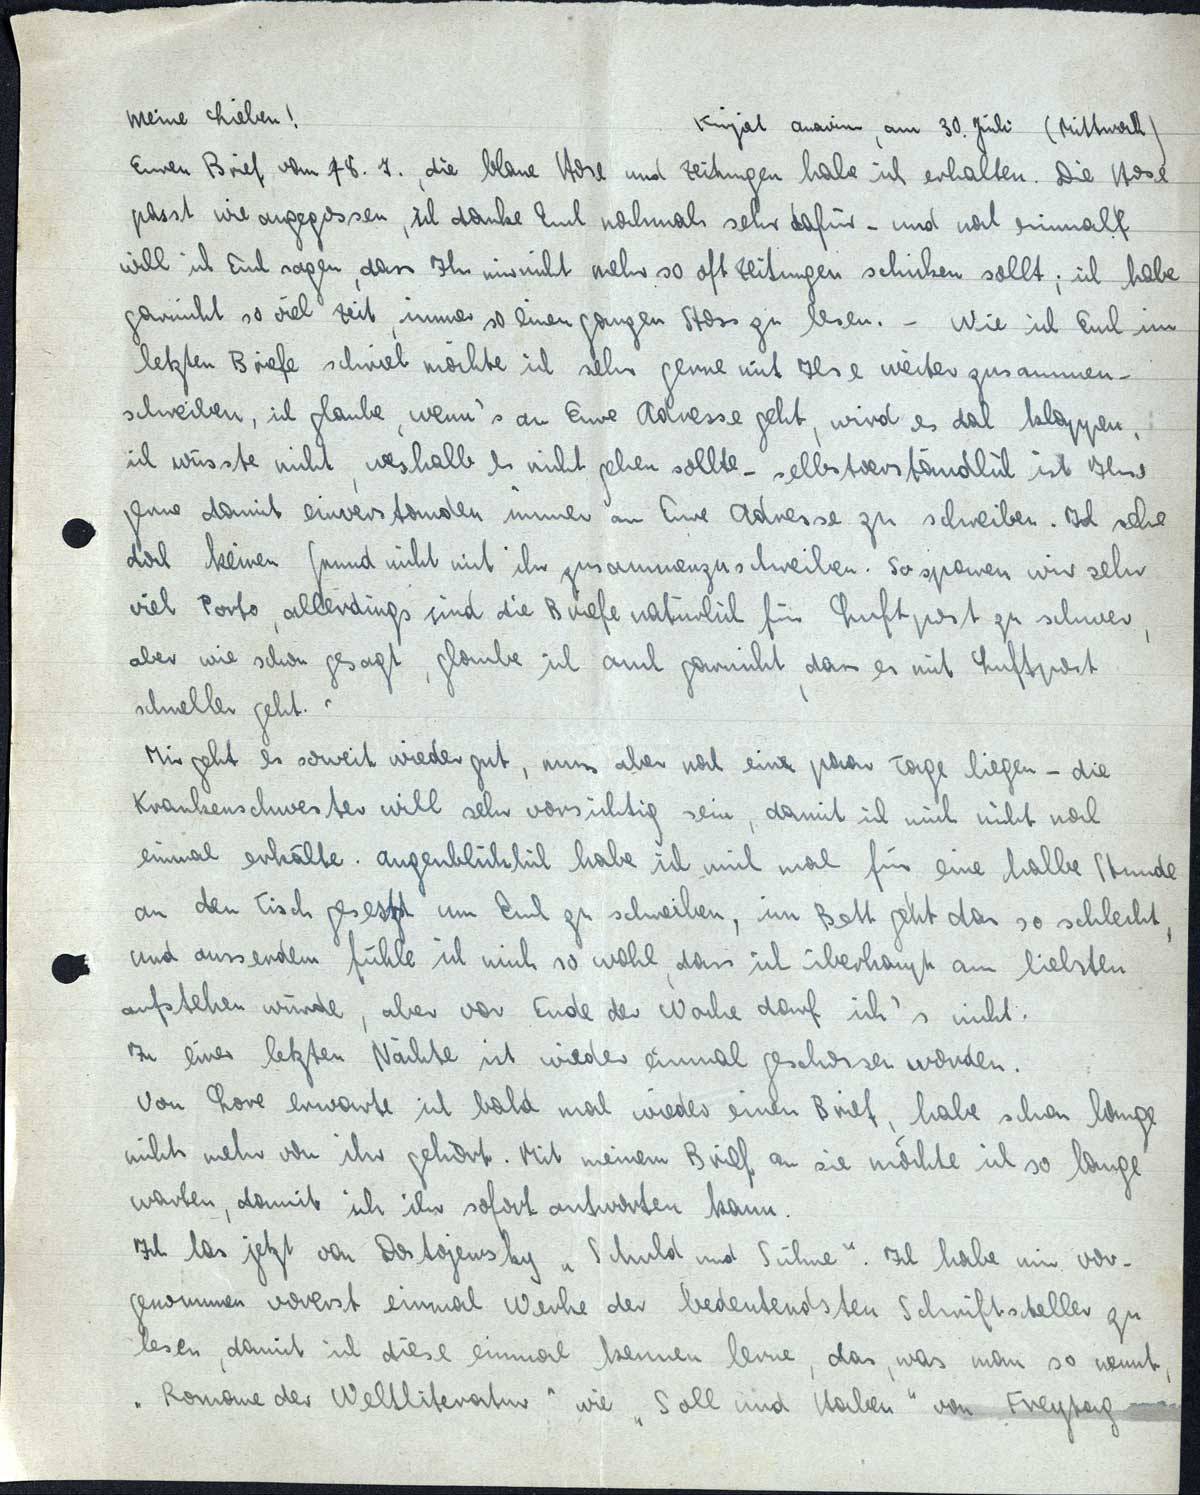 Meine Lieben!
Kirjat anavim, am 30. Juli (Mittwoch)
Euren Brief vom 18. 7., die blaue Hose und Zeitungen habe ich erhalten. Die Hose
passt wie angegossen, ich danke Euch nochmals sehr dafür – und noch einmal
will ich Euch sagen, dass Ihr mir nicht mehr so oft Zeitungen schicken sollt; ich habe
garnicht so viel Zeit, immer so einen ganzen Stoss zu lesen. – Wie ich Euch im
letzten Briefe schrieb möchte ich sehr gerne mit Ilse weiter zusammen-
schreiben, ich glaube, wenn's an Eure Adresse geht, wird es doch klappen,
ich wüsste nicht, weshalb es nicht gehen sollte – selbstverständlich ist Ilse
gerne damit einverstanden immer an Eure Adresse zu schreiben. Ich sehe
doch keinen Grund nicht mit ihr zusammenzuschreiben. So sparen wir sehr
viel Porto, allerdings sind die Briefe natürlich für Luftpost zu schwer,
aber wie schon gesagt, glaube ich auch garnicht, dass es mit Luftpost
schneller geht.
Mir geht es soweit wieder gut, muss aber noch ein paar Tage liegen – die
Krankenschwester will sehr vorsichtig sein, damit ich mich nicht noch
einmal erkälte. Augenblicklich habe ich mich mal für eine halbe Stunde
an den Tisch gesetzt um Euch zu schreiben, im Bett geht das so schlecht,
und aussendem fühle ich mich so wohl, dass ich überhaupt am liebsten
aufstehen würde, aber vor Ende der Woche darf ich's nicht.
In einer letzten Nächte ist wieder einmal geschossen worden.
Von Lore erwarte ich bald mal wieder einen Brief, habe schon lange
nichts mehr von ihr gehört. Mit meinem Brief an sie möchte ich so lange
warten, damit ich ihr sofort antworten kann.
Ich las jetzt von Dostojewsky „Schuld und Sühne“. Ich habe mir vor-
genommen vorerst einmal Werke der bedeutendsten Schriftsteller zu
lesen, damit ich diese einmal kennen lerne, das, was man so nennt,
„Romane der Weltliteratur“ wie „Soll und Haben“ von Freytag